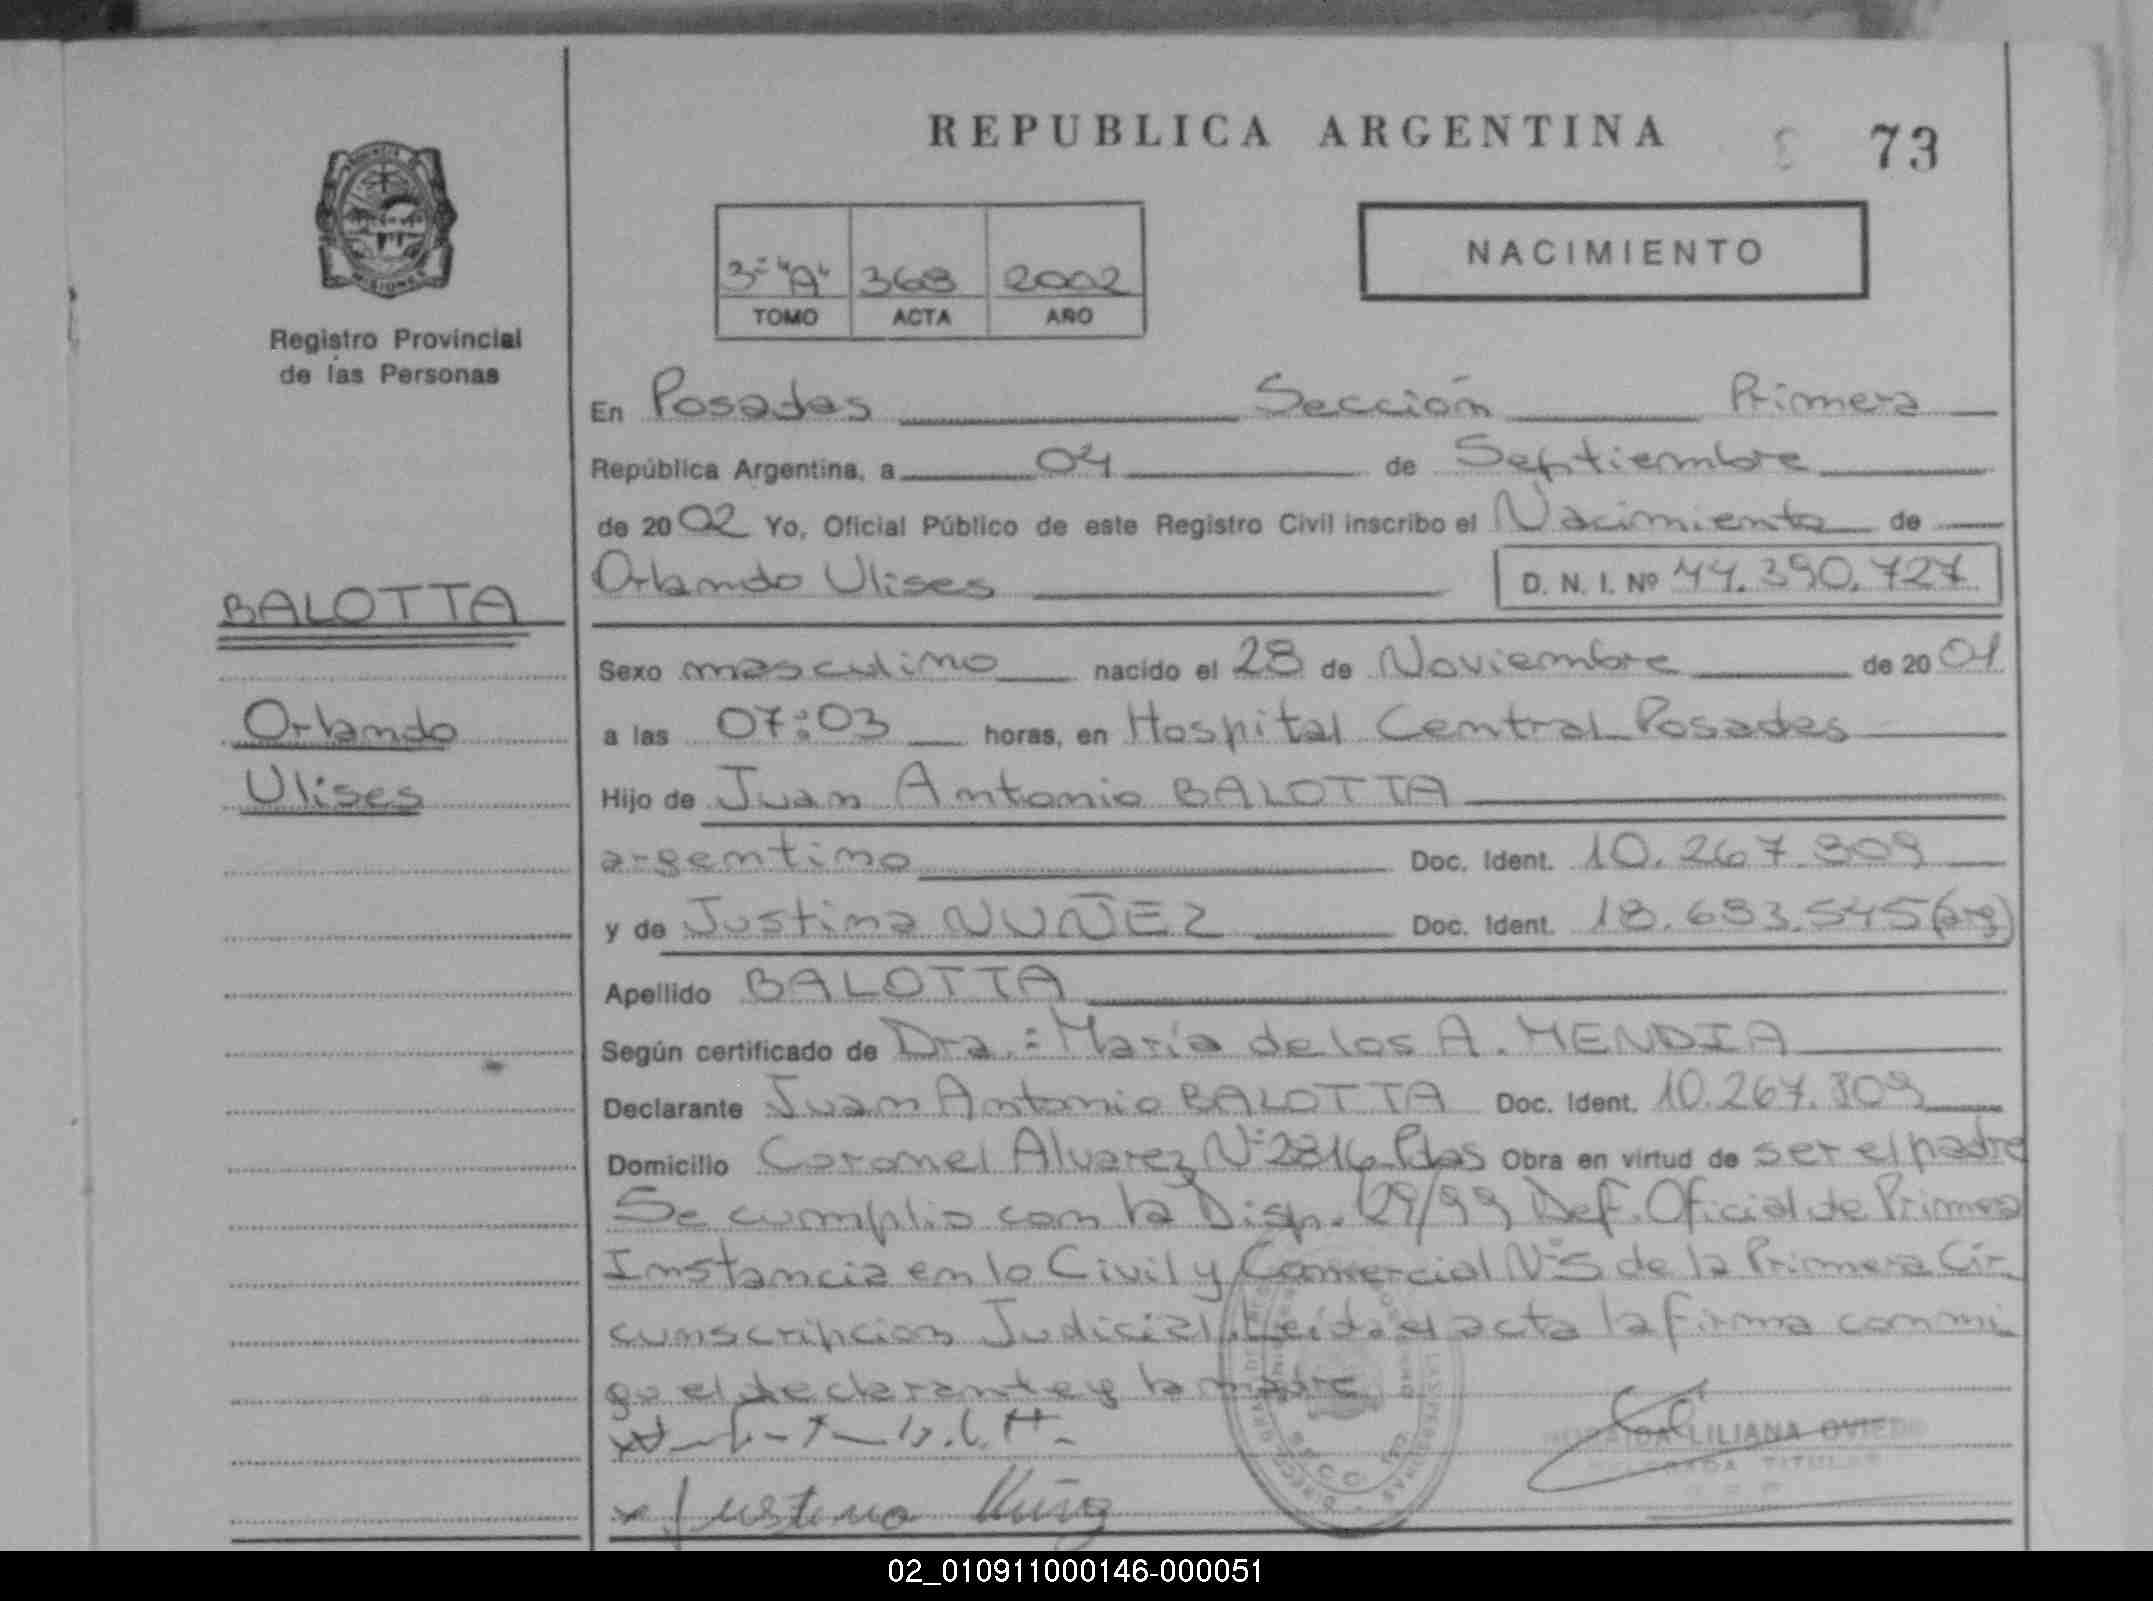 REPUBLICA ARGENTINA
73
NACIMIENTO
3º "A" 368 2002
TOMO ACTA AÑO
Registro Provincial
de las Personas
En Posadas Sección Primera
República Argentina, a 04 de Septiembre
de 2002 Yo, Oficial Público de este Registro Civil inscribo el Nacimiento de
Orlando Ulises D. N. I. Nº 44.390.727
BALOTTA
Orlando
Ulises
Sexo masculino nacido el 28 de Noviembre de 2001
a las 07:03 horas, en Hospital Central Posadas
Hijo de Juan Antonio BALOTTA
argentino Doc. Ident. 10.267.809
y de Justina NUÑEZ Doc. Ident. 18.683.545 (arg)
Apellido BALOTTA
Según certificado de Dra.: María de los A. MENDIA
Declarante Juan Antonio BALOTTA Doc. Ident. 10.267.809
Domicilio Coronel Alvarez Nº 2816 Pdas Obra en virtud de ser el padre
Se cumplio con la Disp. 29/99 Def. Oficial de Primera
Instancia en lo Civil y Comercial Nº 5 de la Primera Cir
cunscripcion Judicial. Leida el acta la firma conmi
go el declarante y la madre
Justina Nuñez
LILIANA OVIEDO
TITULAR
02_010911000146-000051